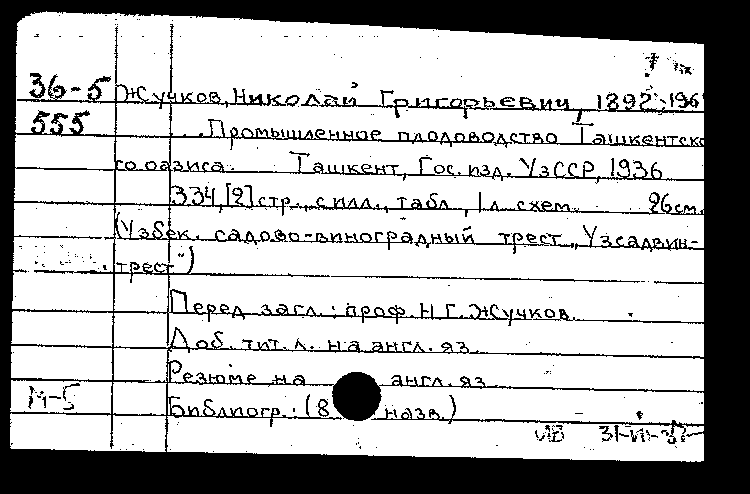 36-5 Жучков, Николай Григорьевич, 1892-196
555 ...Промышленное плодоводство Ташкентско
го оазиса. Ташкент, Гос. изд. УзССР, 1936
334, [2] стр., с илл., табл., 1 л. схем. 26 см.
(Узбек. садово-виноградный трест „Узсадвин-
трест")
Перед загл.: проф. Н.Г. Жучков.
Доб. тит. л. на англ. яз.
Резюме на англ. яз.
М-5 Библиогр.: (8 назв.)
31-III-37